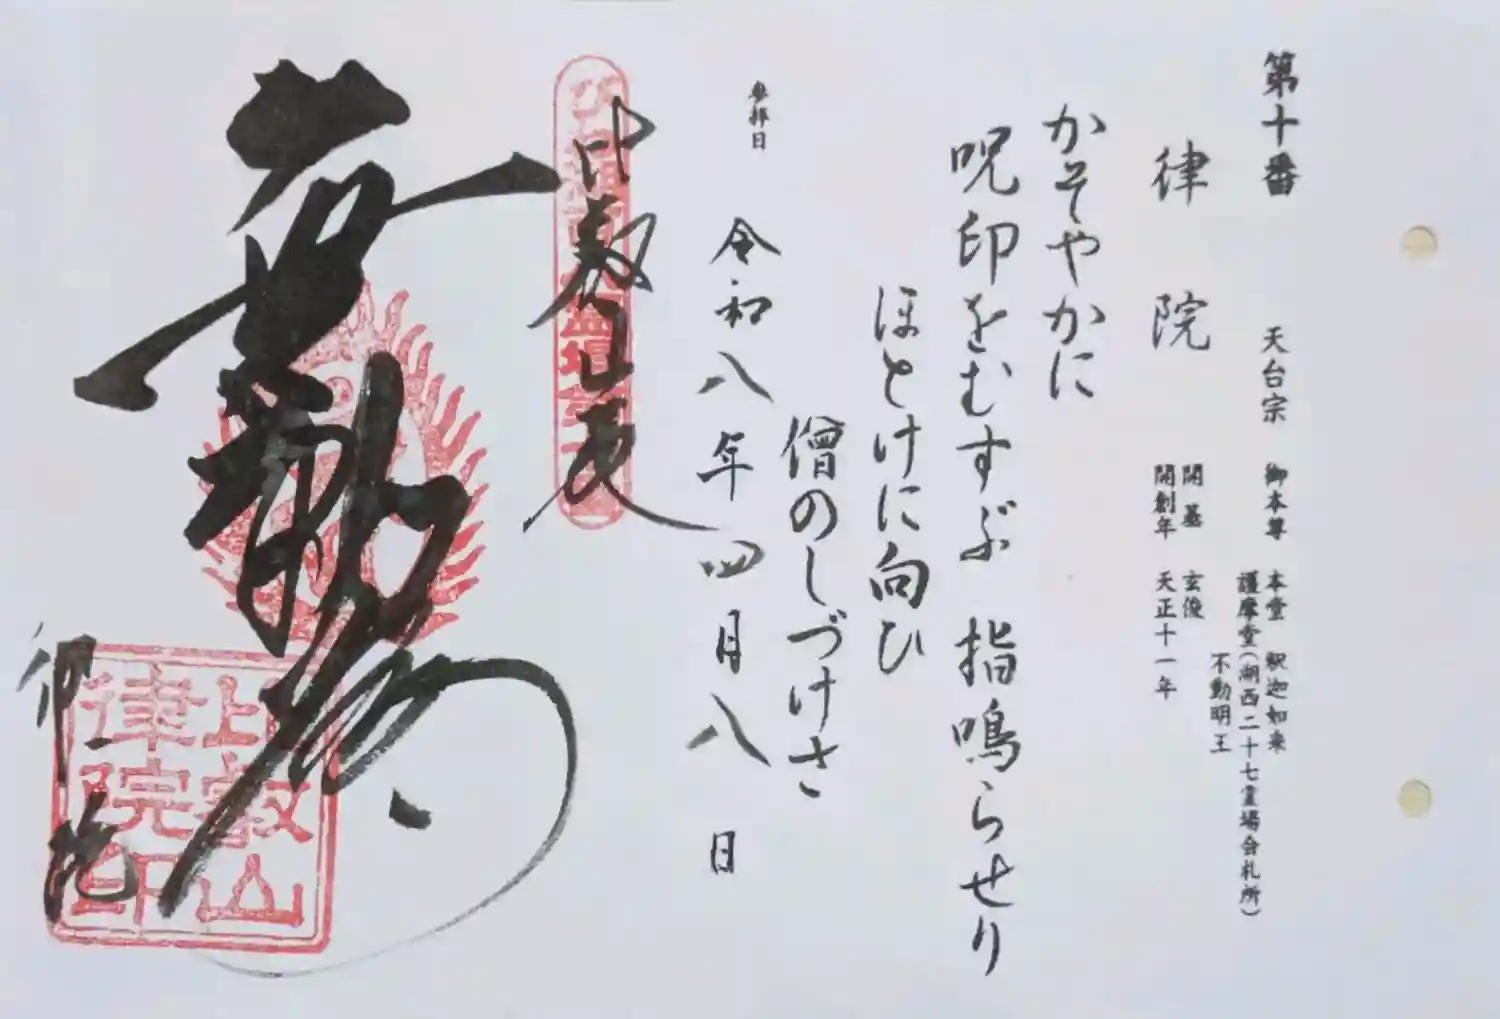 第十番 天台宗 御本尊 本堂 釈迦如来
護摩堂(湖西二十七霊場会札所)
不動明王
律院
開基 玄俊
開創年 天正十一年
かそやかに
呪印をむすぶ 指鳴らせり
ほとけに向ひ
僧のしづけさ
参拝日 令和八年四月八日
比叡山麓
比叡山
律院印